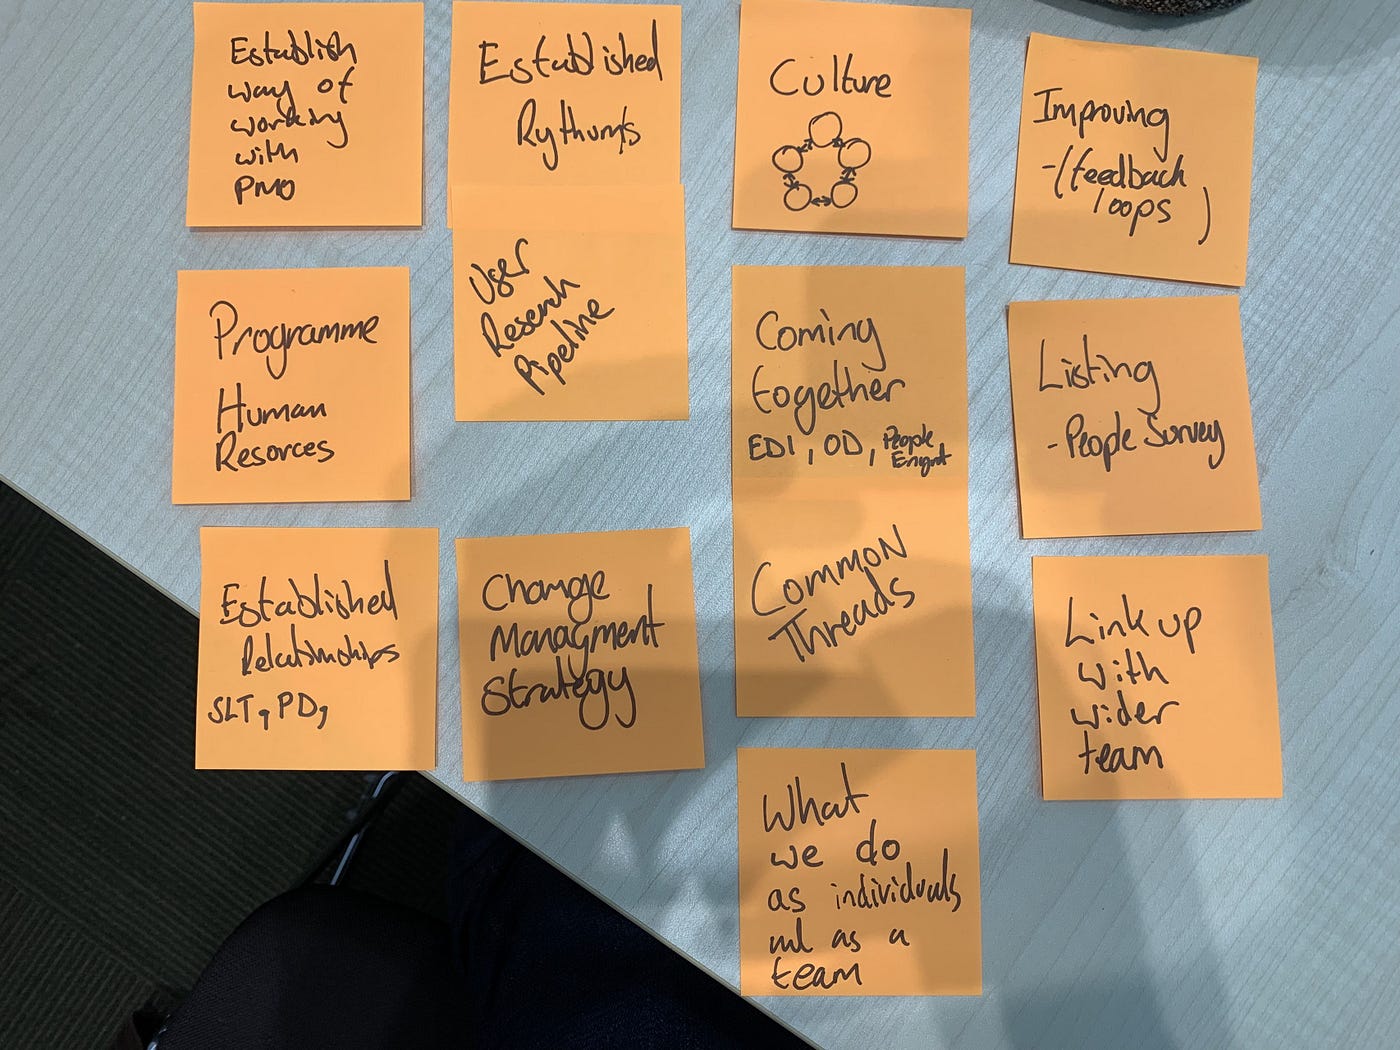 Establish
way of
working
with
PMO
Programme
Human
Resorces
Established
Relationships
SLT, PD,
Established
Rythums
User
Research
Pipeline
Change
Managment
Strategy
Culture
Coming
together
EDI, OD, People
Common
Threads
What
we do
as individuals
as a
team
Improving
-(feedback
loops)
Listing
- People Survey
Link up
with
wider
team